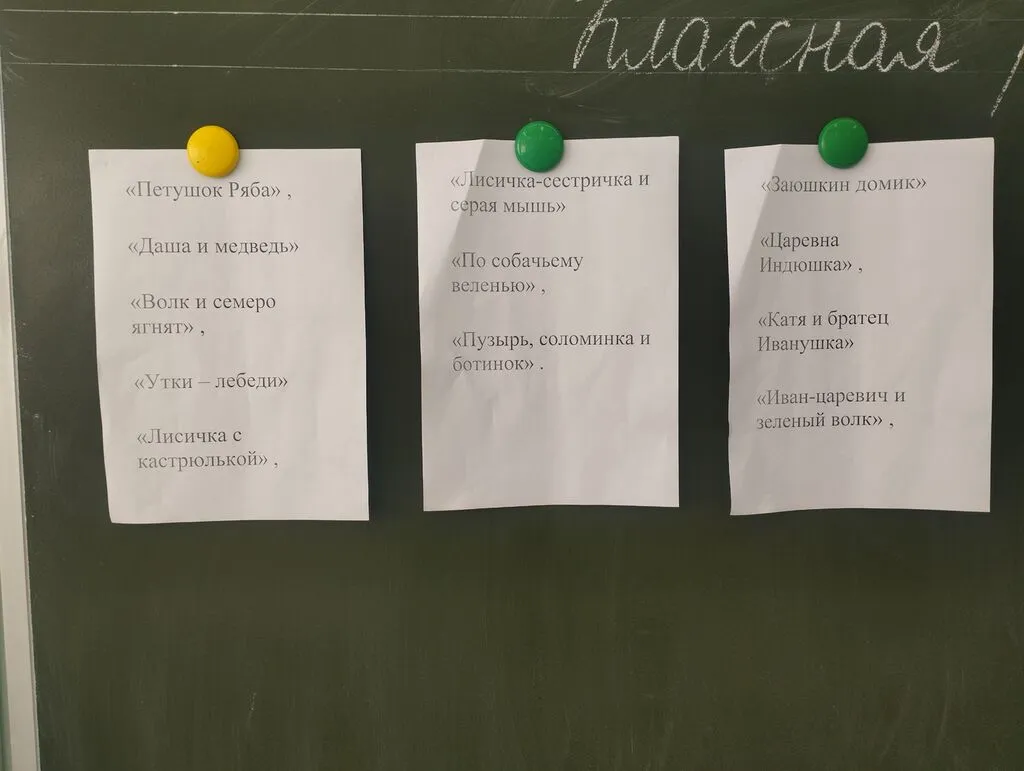 Классная
«Петушок Ряба» ,
«Даша и медведь»
«Волк и семеро
ягнят» ,
«Утки – лебеди»
«Лисичка с
кастрюлькой» ,
«Лисичка-сестричка и
серая мышь»
«По собачьему
веленью» ,
«Пузырь, соломинка и
ботинок» .
«Заюшкин домик»
«Царевна
Индюшка» ,
«Катя и братец
Иванушка»
«Иван-царевич и
зеленый волк» ,